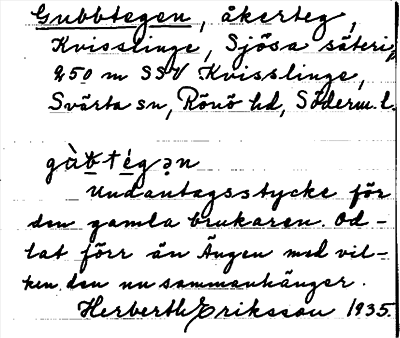 Gubbtegen, åkerteg,
Kvisslinge, Sjösa säteri,
250 m SSV Kvisslinge,
Svärta sn, Rönö hd, Söderm. l.
gùbtég ən
Undantagsstycke för
den gamla brukaren. Od-
lat förr än Ängen med vil-
ken den nu sammanhänger.
Herberth Eriksson 1935.